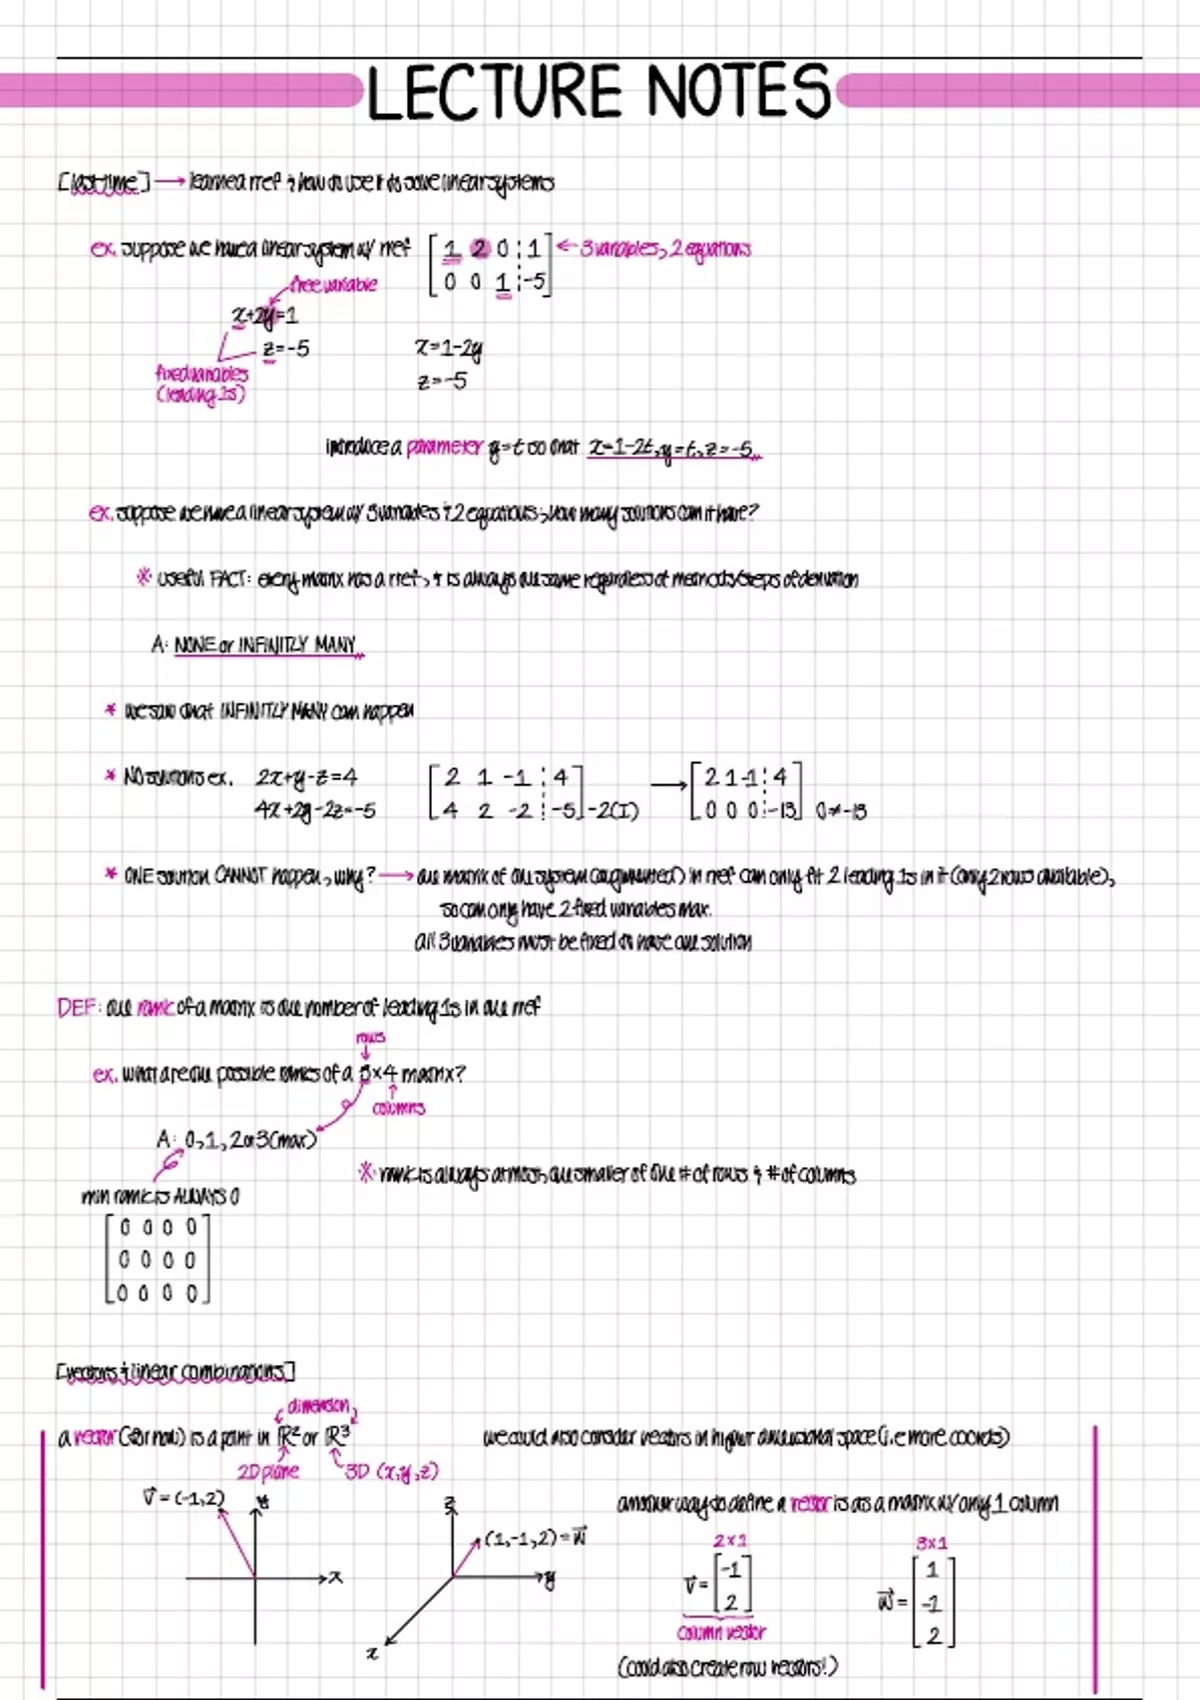 LECTURE NOTES
[last time] → learned rref & how to use it to solve linear systems
ex. suppose we have a linear system w/ rref [1 2 0 ¦ 1] ← 3 variables, 2 equations
free variable [0 0 1 ¦ -5]
x+2y=1
z=-5 x=1-2y
fixed variables z=-5
(leading 1s)
introduce a parameter y=t so that x=1-2t, y=t, z=-5
ex. suppose we have a linear system w/ 3 variables & 2 equations, how many solutions can it have?
※ USEFUL FACT: every matrix has a rref, & is always the same regardless of methods/steps of derivation
A: NONE or INFINITLY MANY
* we saw that INFINITLY MANY can happen
* NO solutions ex. 2x+y-z=4 [2 1 -1 ¦ 4] → [2 1 -1 ¦ 4]
4x+2y-2z=-5 [4 2 -2 ¦ -5] -2(I) [0 0 0 ¦ -13] 0≠-13
* ONE solution CANNOT happen, why? → the matrix of the system (augmented) in rref can only fit 2 leading 1s in it (only 2 rows available),
so can only have 2 fixed variables max.
all 3 variables must be fixed to have one solution
DEF: the rank of a matrix is the number of leading 1s in the rref
rows
ex. what are the possible ranks of a 3×4 matrix?
columns
A: 0, 1, 2 or 3 (max)
※ rank is always at most the smaller of the # of rows & # of columns
min rank is ALWAYS 0
[0 0 0 0]
[0 0 0 0]
[0 0 0 0]
[vectors & linear combinations]
dimension
a vector (for now) is a point in ℝ² or ℝ³ we could also consider vectors in higher dimensional space (i.e more coords)
2D plane 3D (x,y,z)
v⃗ = (-1,2) y z another way to define a vector is as a matrix w/ only 1 column
(1,-1,2)=w⃗ 2×1 3×1
x y v⃗ = [-1] w⃗ = [1]
[2] [-1]
x column vector [2]
(could also create row vectors!)